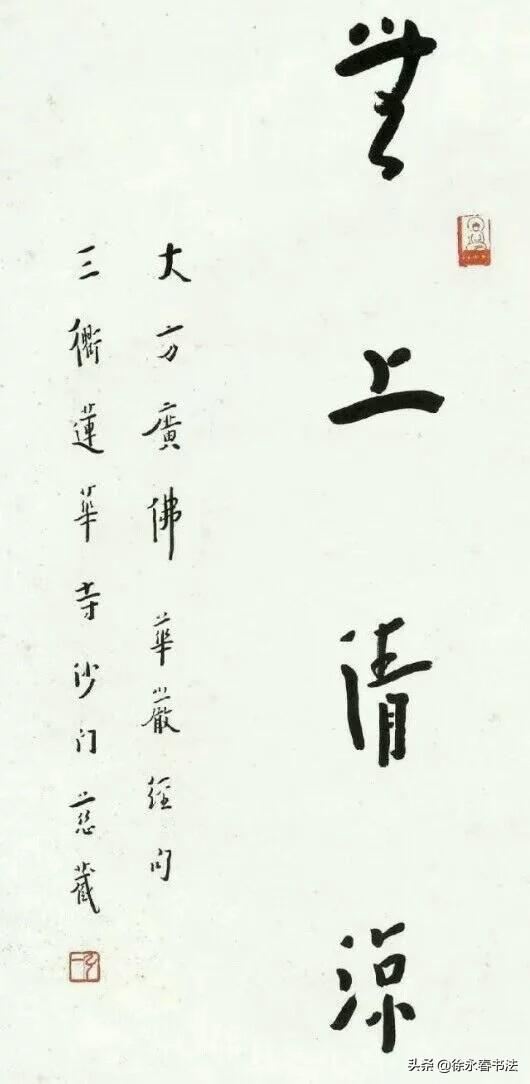 無上清涼
大方廣佛華嚴經句
三衢蓮華寺沙门慈藏
头条 @徐永春书法